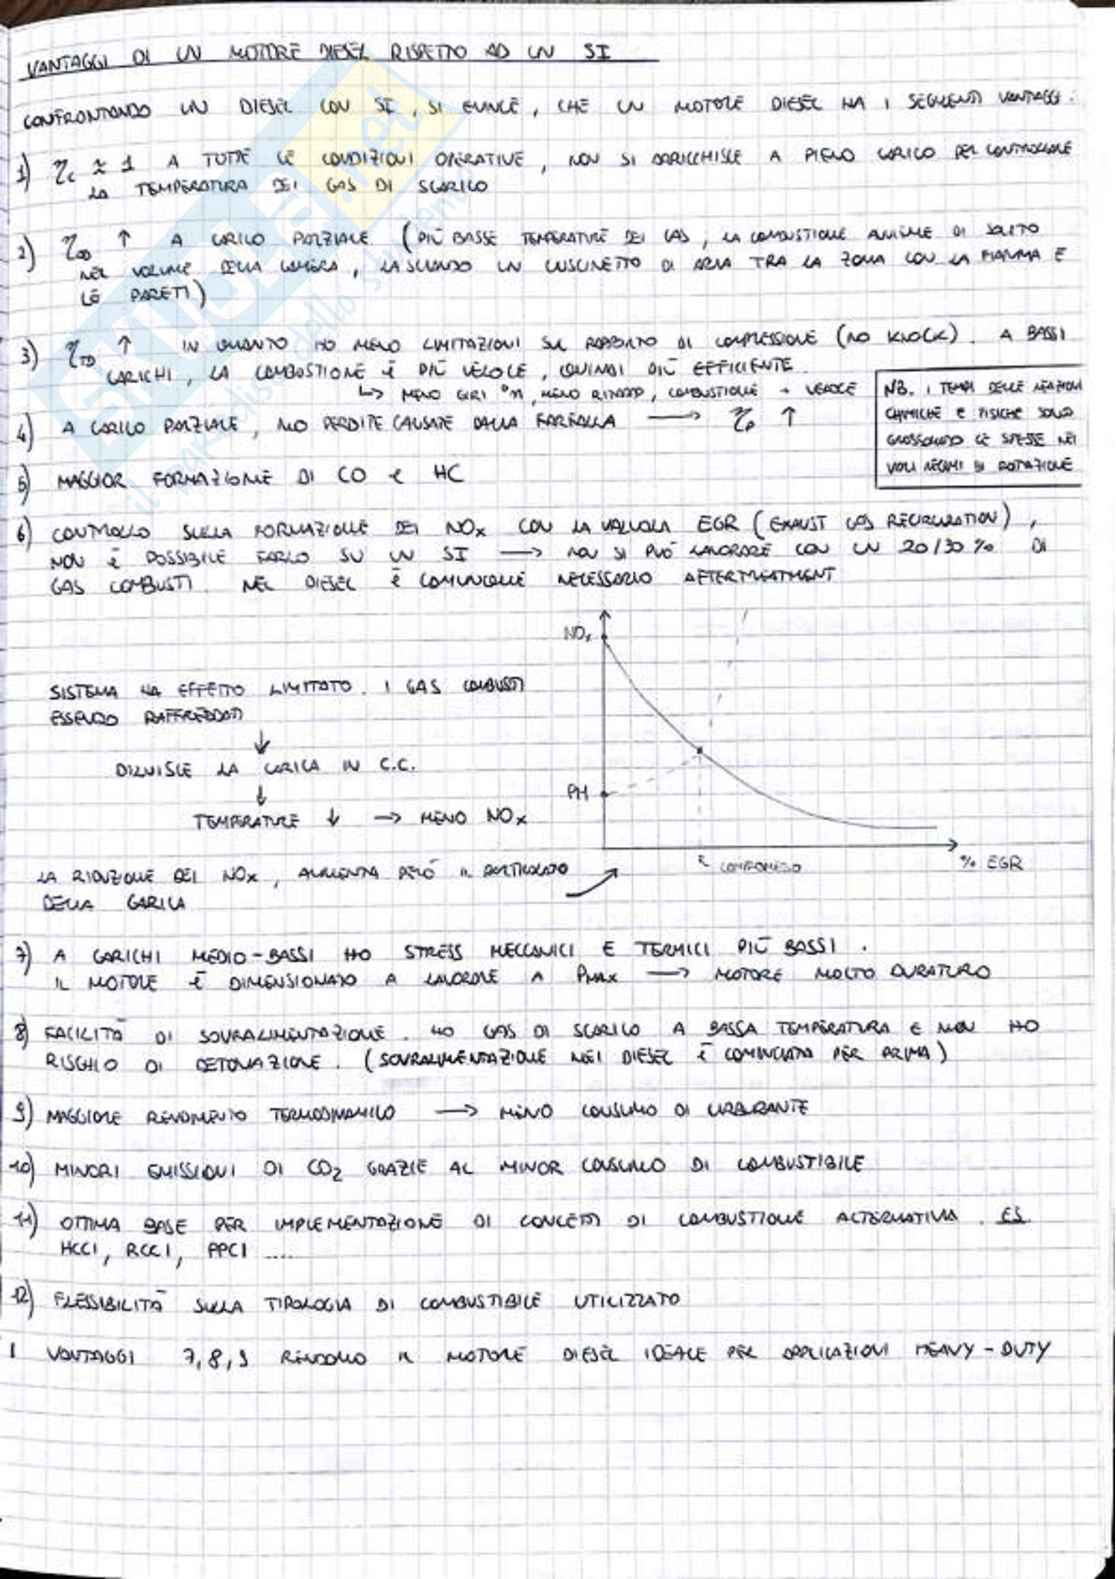 VANTAGGI DI UN MOTORE DIESEL RISPETTO AD UN SI
CONFRONTANDO UN DIESEL CON SI, SI EVINCE, CHE UN MOTORE DIESEL HA I SEGUENTI VANTAGGI.
1) ηc ≈ 1 A TUTTE LE CONDIZIONI OPERATIVE, NON SI ARRICCHISCE A PIENO CARICO PER CONTROLLARE
LA TEMPERATURA DEI GAS DI SCARICO
2) η ↑ A CARICO PARZIALE (PIÙ BASSE TEMPERATURE DEI GAS, LA COMBUSTIONE AVVIENE DI SOLITO
NEL VOLUME DELLA CAMERA, LASCIANDO UN CUSCINETTO DI ARIA TRA LA ZONA CON LA FIAMMA E
LE PARETI)
3) ηTD ↑ IN QUANTO HO MENO LIMITAZIONI SUL RAPPORTO DI COMPRESSIONE (NO KNOCK). A BASSI
CARICHI, LA COMBUSTIONE È PIÙ VELOCE, QUINDI PIÙ EFFICIENTE.
↳ MENO GIRI °n, MENO RITARDO, COMBUSTIONE + VELOCE
4) A CARICO PARZIALE, NO PERDITE CAUSATE DALLA FARFALLA → ηp ↑
NB. I TEMPI DELLE REAZIONI
CHIMICHE E FISICHE SONO
GROSSOMODO LE STESSE NEI
VARI REGIMI DI ROTAZIONE
5) MAGGIOR FORMAZIONE DI CO e HC
6) CONTROLLO SULLA FORMAZIONE DEI NOx CON LA VALVOLA EGR (EXHAUST GAS RECIRCULATION),
NON È POSSIBILE FARLO SU UN SI → NON SI PUÒ LAVORARE CON UN 20/30 % DI
GAS COMBUSTI. NEL DIESEL È COMUNQUE NECESSARIO AFTERTREATMENT
NOx
SISTEMA HA EFFETTO LIMITATO. I GAS COMBUSTI
ESSENDO RAFFREDDATI
↓
DILUISCE LA CARICA IN C.C.
↓
PM
TEMPERATURE ↓ → MENO NOx
COMPROMESSO
% EGR
LA RIDUZIONE DEI NOx, AUMENTA PERÒ IL PARTICOLATO
DELLA CARICA
7) A CARICHI MEDIO-BASSI HO STRESS MECCANICI E TERMICI PIÙ BASSI.
IL MOTORE È DIMENSIONATO A LAVORARE A PMAX → MOTORE MOLTO DURATURO
8) FACILITÀ DI SOVRALIMENTAZIONE. HO GAS DI SCARICO A BASSA TEMPERATURA E NON HO
RISCHIO DI DETONAZIONE. (SOVRALIMENTAZIONE NEI DIESEL È COMINCIATA PER PRIMA)
9) MAGGIORE RENDIMENTO TERMODINAMICO → MENO CONSUMO DI CARBURANTE
10) MINORI EMISSIONI DI CO2 GRAZIE AL MINOR CONSUMO DI COMBUSTIBILE
11) OTTIMA BASE PER IMPLEMENTAZIONE DI CONCETTI DI COMBUSTIONE ALTERNATIVA. ES.
HCCI, RCCI, PPCI ....
12) FLESSIBILITÀ SULLA TIPOLOGIA DI COMBUSTIBILE UTILIZZATO
I VANTAGGI 7, 8, 9 RENDONO IL MOTORE DIESEL IDEALE PER APPLICAZIONI HEAVY-DUTY